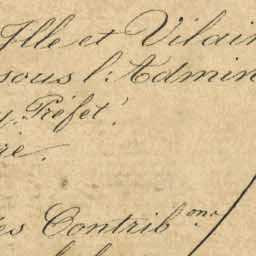 Ille et Vilain
sous l'Admin
Préfet
re.
es Contrib.ons